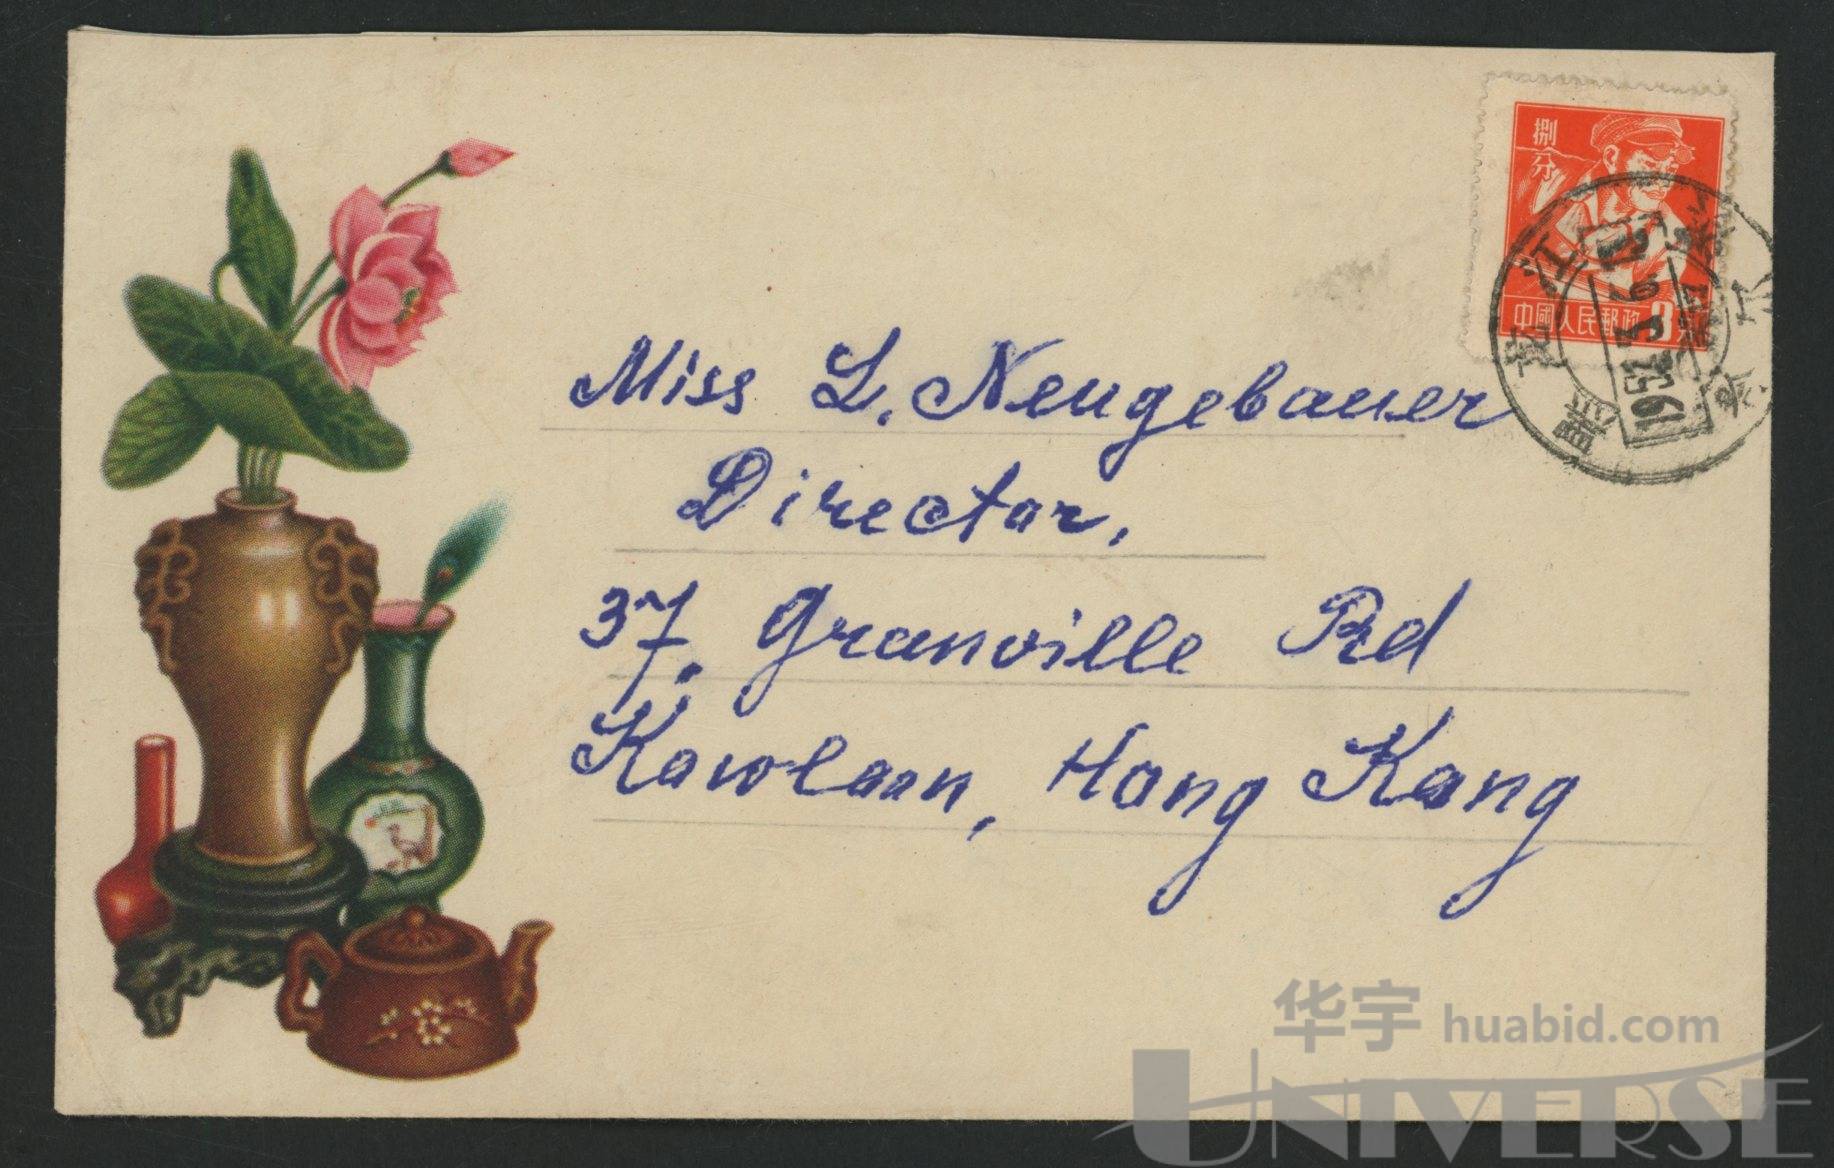 捌分
中國人民郵政 8
黑龙江
Miss L. Neugebauer
Director,
37, Granville Rd
Kowloon, Hong Kong
华宇 huabid.com
UNIVERSE